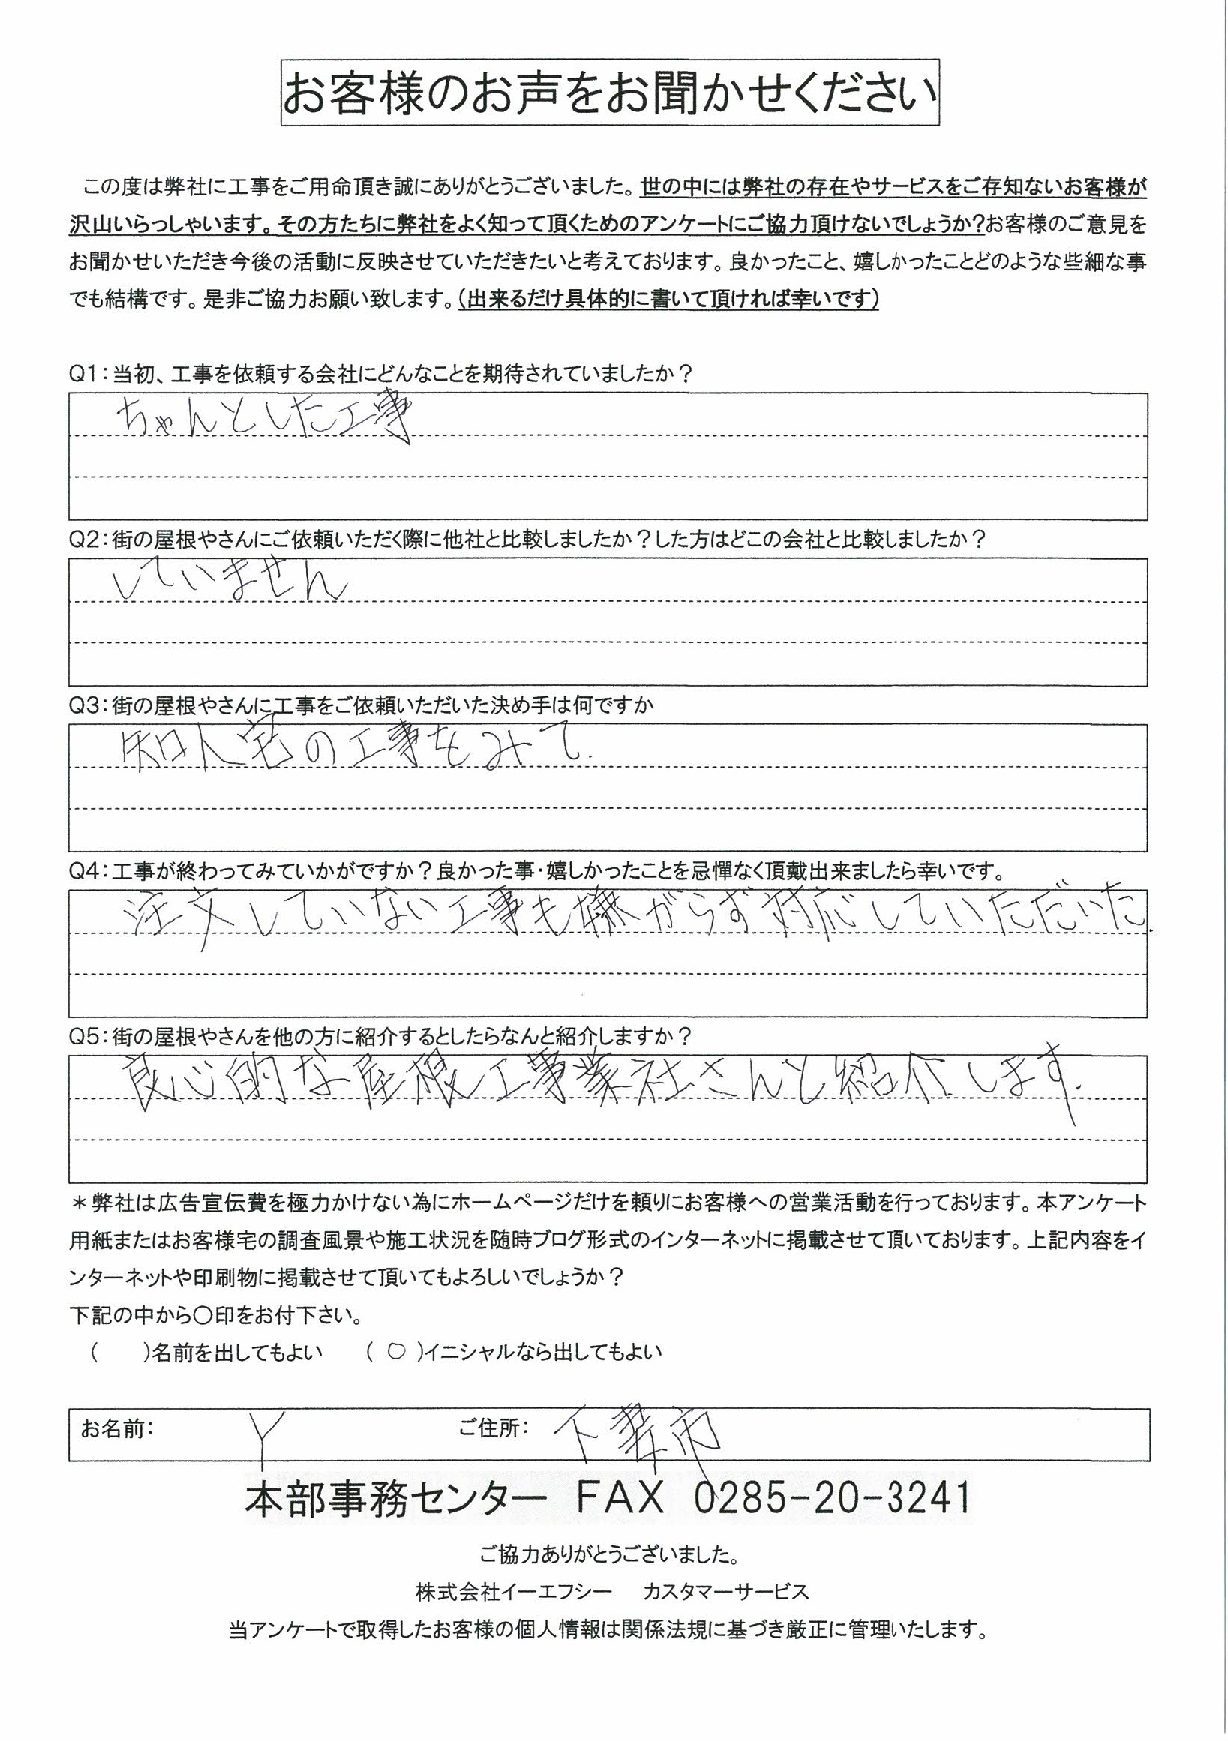 お客様のお声をお聞かせください
この度は弊社に工事をご用命頂き誠にありがとうございました。世の中には弊社の存在やサービスをご存知ないお客様が
沢山いらっしゃいます。その方たちに弊社をよく知って頂くためのアンケートにご協力頂けないでしょうか?お客様のご意見を
お聞かせいただき今後の活動に反映させていただきたいと考えております。良かったこと、嬉しかったことどのような些細な事
でも結構です。是非ご協力お願い致します。(出来るだけ具体的に書いて頂ければ幸いです)
Q1:当初、工事を依頼する会社にどんなことを期待されていましたか?
ちゃんとした工事
Q2:街の屋根やさんにご依頼いただく際に他社と比較しましたか?した方はどこの会社と比較しましたか?
していません
Q3:街の屋根やさんに工事をご依頼いただいた決め手は何ですか
知人宅の工事をみて.
Q4:工事が終わってみていかがですか?良かった事・嬉しかったことを忌憚なく頂戴出来ましたら幸いです。
注文していない工事も嫌がらず対応していただいた.
Q5:街の屋根やさんを他の方に紹介するとしたらなんと紹介しますか?
良心的な屋根工事業社さんと紹介します.
*弊社は広告宣伝費を極力かけない為にホームページだけを頼りにお客様への営業活動を行っております。本アンケート
用紙またはお客様宅の調査風景や施工状況を随時ブログ形式のインターネットに掲載させて頂いております。上記内容をイ
ンターネットや印刷物に掲載させて頂いてもよろしいでしょうか?
下記の中から〇印をお付下さい。
( )名前を出してもよい ( ○ )イニシャルなら出してもよい
お名前: Y ご住所: 下妻市
本部事務センター FAX 0285-20-3241
ご協力ありがとうございました。
株式会社イーエフシー カスタマーサービス
当アンケートで取得したお客様の個人情報は関係法規に基づき厳正に管理いたします。